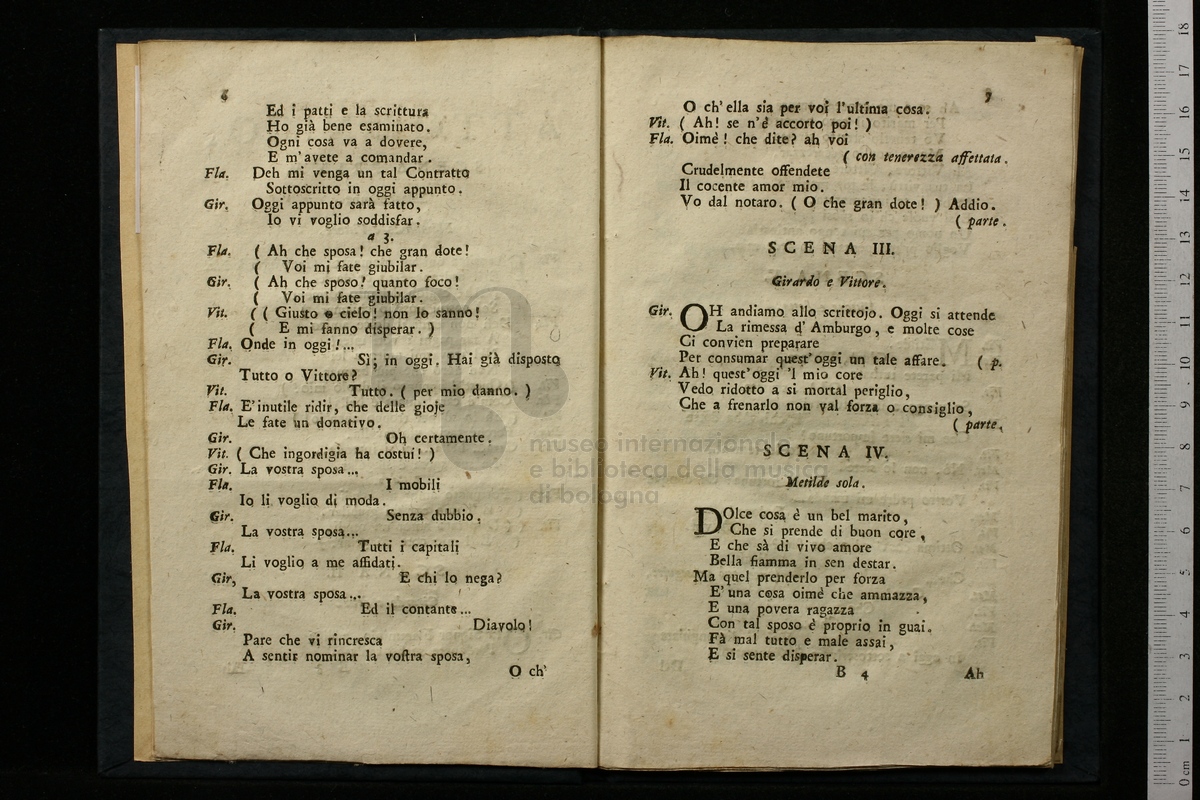 6
Ed i patti e la scrittura
Ho già bene esaminato.
Ogni cosa va a dovere,
E m'avete a comandar.
Fla. Deh mi venga un tal Contratto
Sottoscritto in oggi appunto.
Gir. Oggi appunto sarà fatto,
Io vi voglio soddisfar.
a 3.
Fla. ( Ah che sposa! che gran dote!
( Voi mi fate giubilar.
Gir. ( Ah che sposo! quanto foco!
( Voi mi fate giubilar.
Vit. ( ( Giusto o cielo! non lo sanno!
( E mi fanno disperar. )
Fla. Onde in oggi!...
Gir. Sì; in oggi. Hai già disposto
Tutto o Vittore?
Vit. Tutto. ( per mio danno. )
Fla. E'inutile ridir, che delle gioje
Le fate un donativo.
Gir. Oh certamente.
Vit. ( Che ingordigia ha costui! )
Gir. La vostra sposa...
Fla. I mobili
Io li voglio di moda.
Gir. Senza dubbio.
La vostra sposa...
Fla. Tutti i capitali
Li voglio a me affidati.
Gir, E chi lo nega?
La vostra sposa...
Fla. Ed il contante...
Gir. Diavolo!
Pare che vi rincresca
A sentir nominar la vostra sposa,
O ch'
7
O ch'ella sia per voi l'ultima cosa.
Vit. ( Ah! se n'è accorto poi! )
Fla. Oimè! che dite? ah voi
( con tenerezza affettata.
Crudelmente offendete
Il cocente amor mio.
Vo dal notaro. ( O che gran dote! ) Addio.
( parte.
SCENA III.
Girardo e Vittore.
Gir. OH andiamo allo scrittojo. Oggi si attende
La rimessa d'Amburgo, e molte cose
Ci convien preparare
Per consumar quest'oggi un tale affare. ( p.
Vit. Ah! quest'oggi 'l mio core
Vedo ridotto a si mortal periglio,
Che a frenarlo non val forza o consiglio,
( parte.
SCENA IV.
Metilde sola.
DOlce cosa è un bel marito,
Che si prende di buon core,
E che sà di vivo amore
Bella fiamma in sen destar.
Ma quel prenderlo per forza
E' una cosa oimè che ammazza,
E una povera ragazza
Con tal sposo è proprio in guai.
Fà mal tutto e male assai,
E si sente disperar.
B 4 Ah
museo internazionale
e biblioteca della musica
di bologna
0 cm 1 2 3 4 5 6 7 8 9 10 11 12 13 14 15 16 17 18